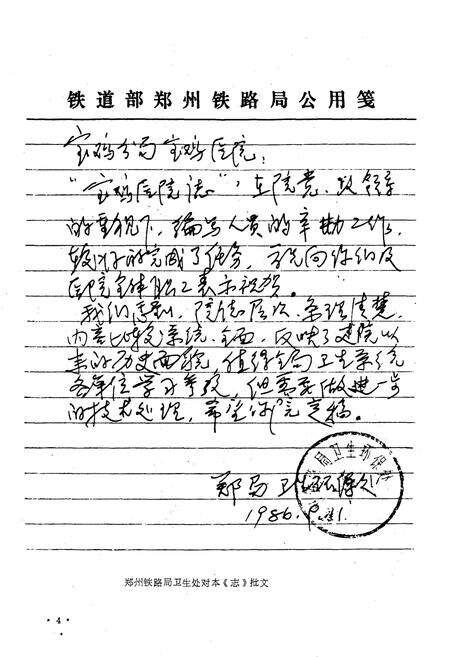 铁道部郑州铁路局公用笺
宝鸡分局宝鸡医院：
“宝鸡医院志”，在院党、政领导
的重视下，编写人员的辛勤工作，
较好的完成了任务，可说向你们及
医院全体职工表示祝贺。
我们感到，院志层次、条理清楚，
内容比较系统、全面，反映了建院以
来的历史面貌，值得全局卫生系统
各单位学习参考，但需要做进一步
的技术处理，希望你院定稿。
郑局卫生环保处
局卫生环保
1986.9.11.
郑州铁路局卫生处对本《志》批文
·4·